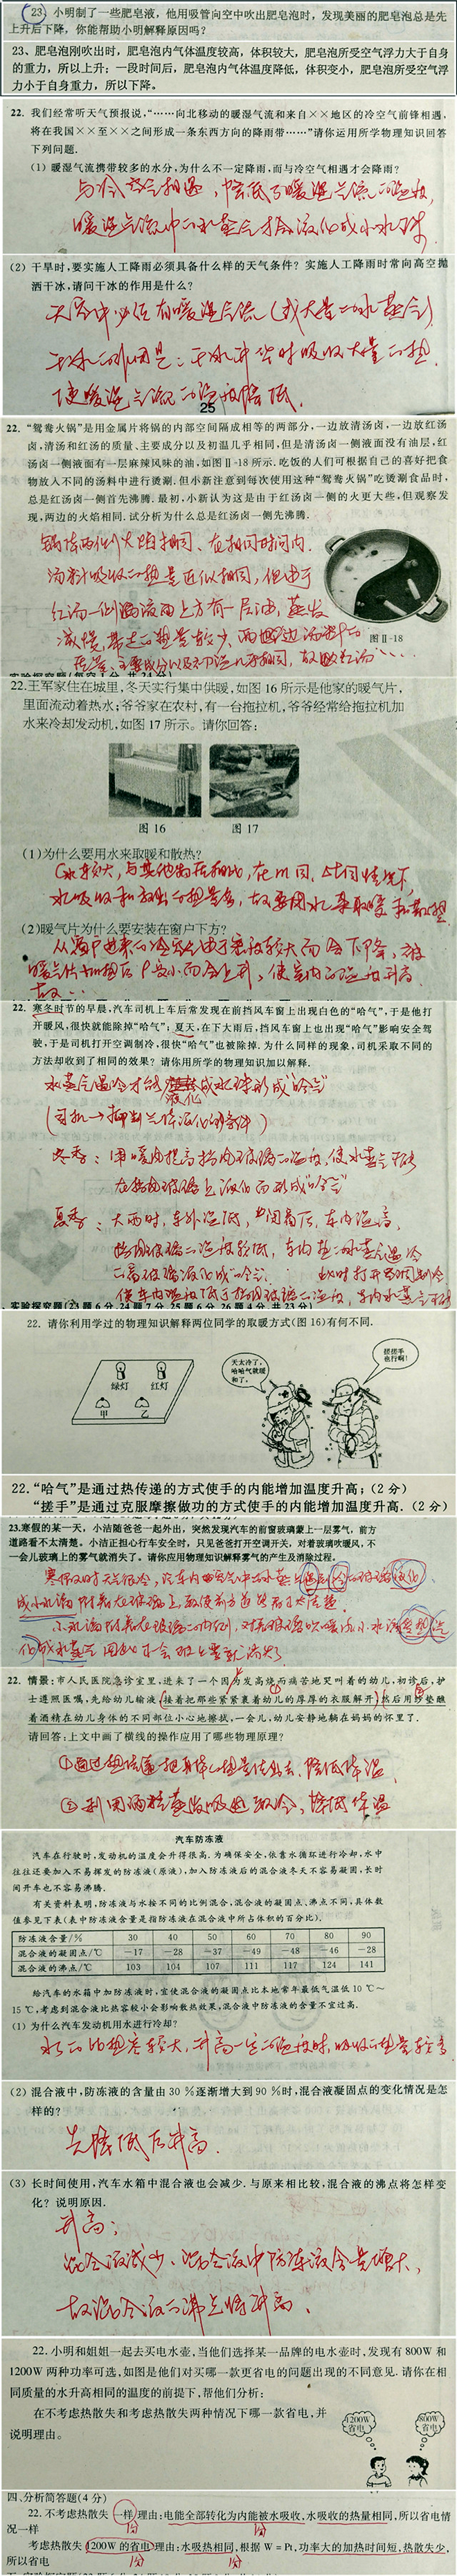 23. 小明制了一些肥皂液，他用吸管向空中吹出肥皂泡时，发现美丽的肥皂泡总是先
上升后下降，你能帮助小明解释原因吗？
23、肥皂泡刚吹出时，肥皂泡内气体温度较高，体积较大，肥皂泡所受空气浮力大于自身
的重力，所以上升；一段时间后，肥皂泡内气体温度降低，体积变小，肥皂泡所受空气浮
力小于自身重力，所以下降。
22. 我们经常听天气预报说，“……向北移动的暖湿气流和来自××地区的冷空气前锋相遇，
将在我国××至××之间形成一条东西方向的降雨带……”请你运用所学物理知识回答
下列问题.
(1) 暖湿气流携带较多的水分，为什么不一定降雨，而与冷空气相遇才会降雨？
与冷空气相遇，降低了暖湿气流的温度，
暖湿气流中的水蒸气才会液化成小水珠.
(2) 干旱时，要实施人工降雨必须具备什么样的天气条件？实施人工降雨时常向高空抛
洒干冰，请问干冰的作用是什么？
天空中必须有暖湿气流（或大量的水蒸气）
干冰的作用是：干冰升华时吸收大量的热，
使暖湿气流的温度降低.
25
22. “鸳鸯火锅”是用金属片将锅的内部空间隔成相等的两部分，一边放清汤卤，一边放红汤
卤，清汤和红汤的质量、主要成分以及初温几乎相同，但是清汤卤一侧液面没有油层，红
汤卤一侧液面有一层麻辣风味的油，如图Ⅱ-18所示. 吃饭的人们可根据自己的喜好把食
物放入不同的汤料中进行烫涮. 但小新注意到每次使用这种“鸳鸯火锅”吃烫涮食品时，
总是红汤卤一侧首先沸腾. 最初，小新认为这是由于红汤卤一侧的火更大些，但观察发
现，两边的火焰相同. 试分析为什么总是红汤卤一侧先沸腾.
锅体两侧火焰相同、在相同时间内，
汤料吸收的热量近似相同，但由于
红汤一侧汤液面上方有一层油，蒸发
减慢，带走的热量较少，两边汤料的
质量、主要成分以及初温几乎相同，故红汤……
图Ⅱ-18
22.王军家住在城里，冬天实行集中供暖，如图 16 所示是他家的暖气片，
里面流动着热水；爷爷家在农村，有一台拖拉机，爷爷经常给拖拉机加
水来冷却发动机，如图 17 所示。请你回答：
图 16 图 17
(1)为什么要用水来取暖和散热？
C水较大，与其他物质相比，在m同、Δt同情况下，
水吸收和放出的热量多，故要用水来取暖和散热
(2)暖气片为什么要安装在窗户下方？
从窗户进来的冷空气由于密度较大而会下降，被
暖气片加热后ρ变小而会上升，使室内的温度升高.
故…
22. 寒冬时节的早晨，汽车司机上车后常发现在前挡风车窗上出现白色的“哈气”，于是他打
开暖风，很快就能除掉“哈气”；夏天，在下大雨后，挡风车窗上也出现“哈气”影响安全驾
驶，于是司机打开空调制冷，很快“哈气”也被除掉. 为什么同样的现象，司机采取不同的
方法却收到了相同的效果？请你用所学的物理知识加以解释.
水蒸气遇冷才能液化成水珠形成“哈气”
(司机→抑制气体液化的条件)
冬季：用暖风提高挡风玻璃的温度，使水蒸气不能
在挡风玻璃上液化而形成“哈气”
夏季：大雨时，车外温低，闭窗后，车内温高，
挡风玻璃的温度较低，车内热的水蒸气遇冷
的玻璃液化成“哈气”. 此时打开空调制冷，
使车内温度低于挡风玻璃的温度，车内水蒸气不能
实验探究题(23 题 6 分，24 题 7 分，25 题 6 分，26 题 4 分，共 23 分)
22. 请你利用学过的物理知识解释两位同学的取暖方式(图 16)有何不同.
绿灯 红灯
甲 乙
天太冷了，
哈哈气就暖
和了。
搓搓手
也行啊！
22. “哈气”是通过热传递的方式使手的内能增加温度升高；（2 分）
“搓手”是通过克服摩擦做功的方式使手的内能增加温度升高.（2 分）
23.寒假的某一天，小洁随爸爸一起外出，突然发现汽车的前窗玻璃蒙上一层雾气，前方
道路看不太清楚。小洁正担心行车安全时，只见爸爸打开空调开关，对着玻璃吹暖风，不
一会儿玻璃上的雾气就消失了。请你应用物理知识解释雾气的产生及消除过程。
寒假的时天气很冷，汽车内空气中的水蒸气遇到冷的玻璃液化
成小水滴附着在玻璃上，
小水滴附着在玻璃的内侧，对着玻璃吹暖风小水滴受热汽
化成水蒸气
22. 情景：市人民医院急诊室里，进来了一个因为发高烧而痛苦地哭叫着的幼儿，初诊后，护
士遵照医嘱，先给幼儿输液，接着把那些紧紧裹着幼儿的厚厚的衣服解开，然后用纱垫醮
着酒精在幼儿身体的不同部位小心地擦拭，一会儿，幼儿安静地躺在妈妈的怀里了.
请回答：上文中画了横线的操作应用了哪些物理原理？
①通过热传递把身体的热量传出去，降低体温
②利用酒精蒸发吸热致冷，降低体温
汽车防冻液
汽车在行驶时，发动机的温度会升得很高. 为确保安全，依靠水循环进行冷却，水中
往往还要加入不易挥发的防冻液(原液)，加入防冻液后的混合液冬天不容易凝固，长时
间开车也不容易沸腾.
有关资料表明，防冻液与水按不同的比例混合，混合液的凝固点、沸点不同，具体数
值参见下表(表中防冻液含量是指防冻液在混合液中所占体积的百分比).
防冻液含量/% 30 40 50 60 70 80 90
混合液的凝固点/℃ －17 －28 －37 －49 －48 －46 －28
混合液的沸点/℃ 103 104 107 111 117 124 141
给汽车的水箱中加防冻液时，宜使混合液的凝固点比本地常年最低气温低 10 ℃～
15 ℃，考虑到混合液比热容较小会影响散热效果，混合液中防冻液的含量不宜过高.
(1) 为什么汽车发动机用水进行冷却？
水的比热容较大，升高一定的温度时，吸收的热量较多
(2) 混合液中，防冻液的含量由 30 %逐渐增大到 90 %时，混合液凝固点的变化情况是怎
样的？
先降低后升高.
(3) 长时间使用，汽车水箱中混合液也会减少. 与原来相比较，混合液的沸点将怎样变
化？说明原因.
升高；
混合液减少、混合液中防冻液含量增大，
故混合液的沸点将升高.
22. 小明和姐姐一起去买电水壶，当他们选择某一品牌的电水壶时，发现有 800W 和
1200W 两种功率可选，如图是他们对买哪一款更省电的问题出现的不同意见. 请你在相
同质量的水升高相同的温度的前提下，帮他们分析：
在不考虑热散失和考虑热散失两种情况下哪一款省电，并
说明理由。
1200W
省电
800W
省电
四、分析简答题(4 分)
22. 不考虑热散失 一样 理由：电能全部转化为内能被水吸收，水吸收的热量相同，所以省电情
况一样 1分 1分
考虑热散失 1200W 的省电 理由：水吸热相同，根据 W = Pt，功率大的加热时间短，热散失少，
所以省电 1分 1分